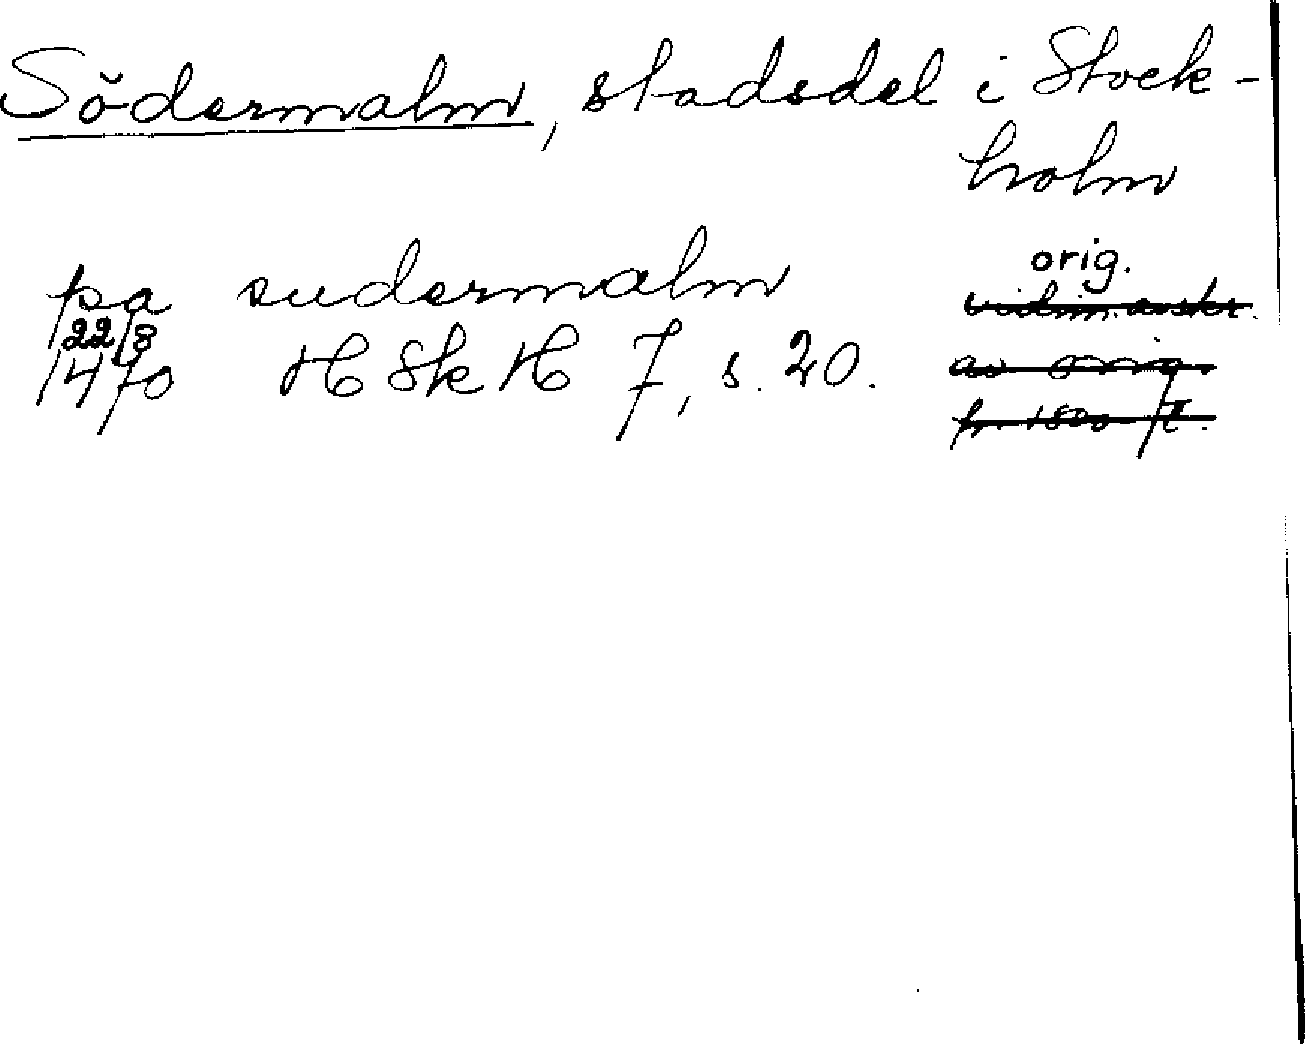 Södermalm, stadsdel i Stock-
holm
pa sudermalm orig.
22/8 vidim. avskr.
1470 HSkH 7, s. 20. av orig.
fr. 1500-t.